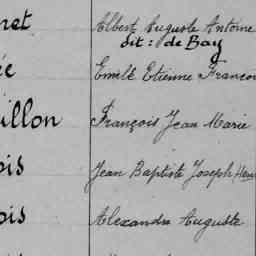 net Albert Auguste Antoine
dit : de Bay
ée Emile Etienne Francois
illon François Jean Marie
ois Jean Baptiste Joseph (Henri
ois Alexandre Auguste